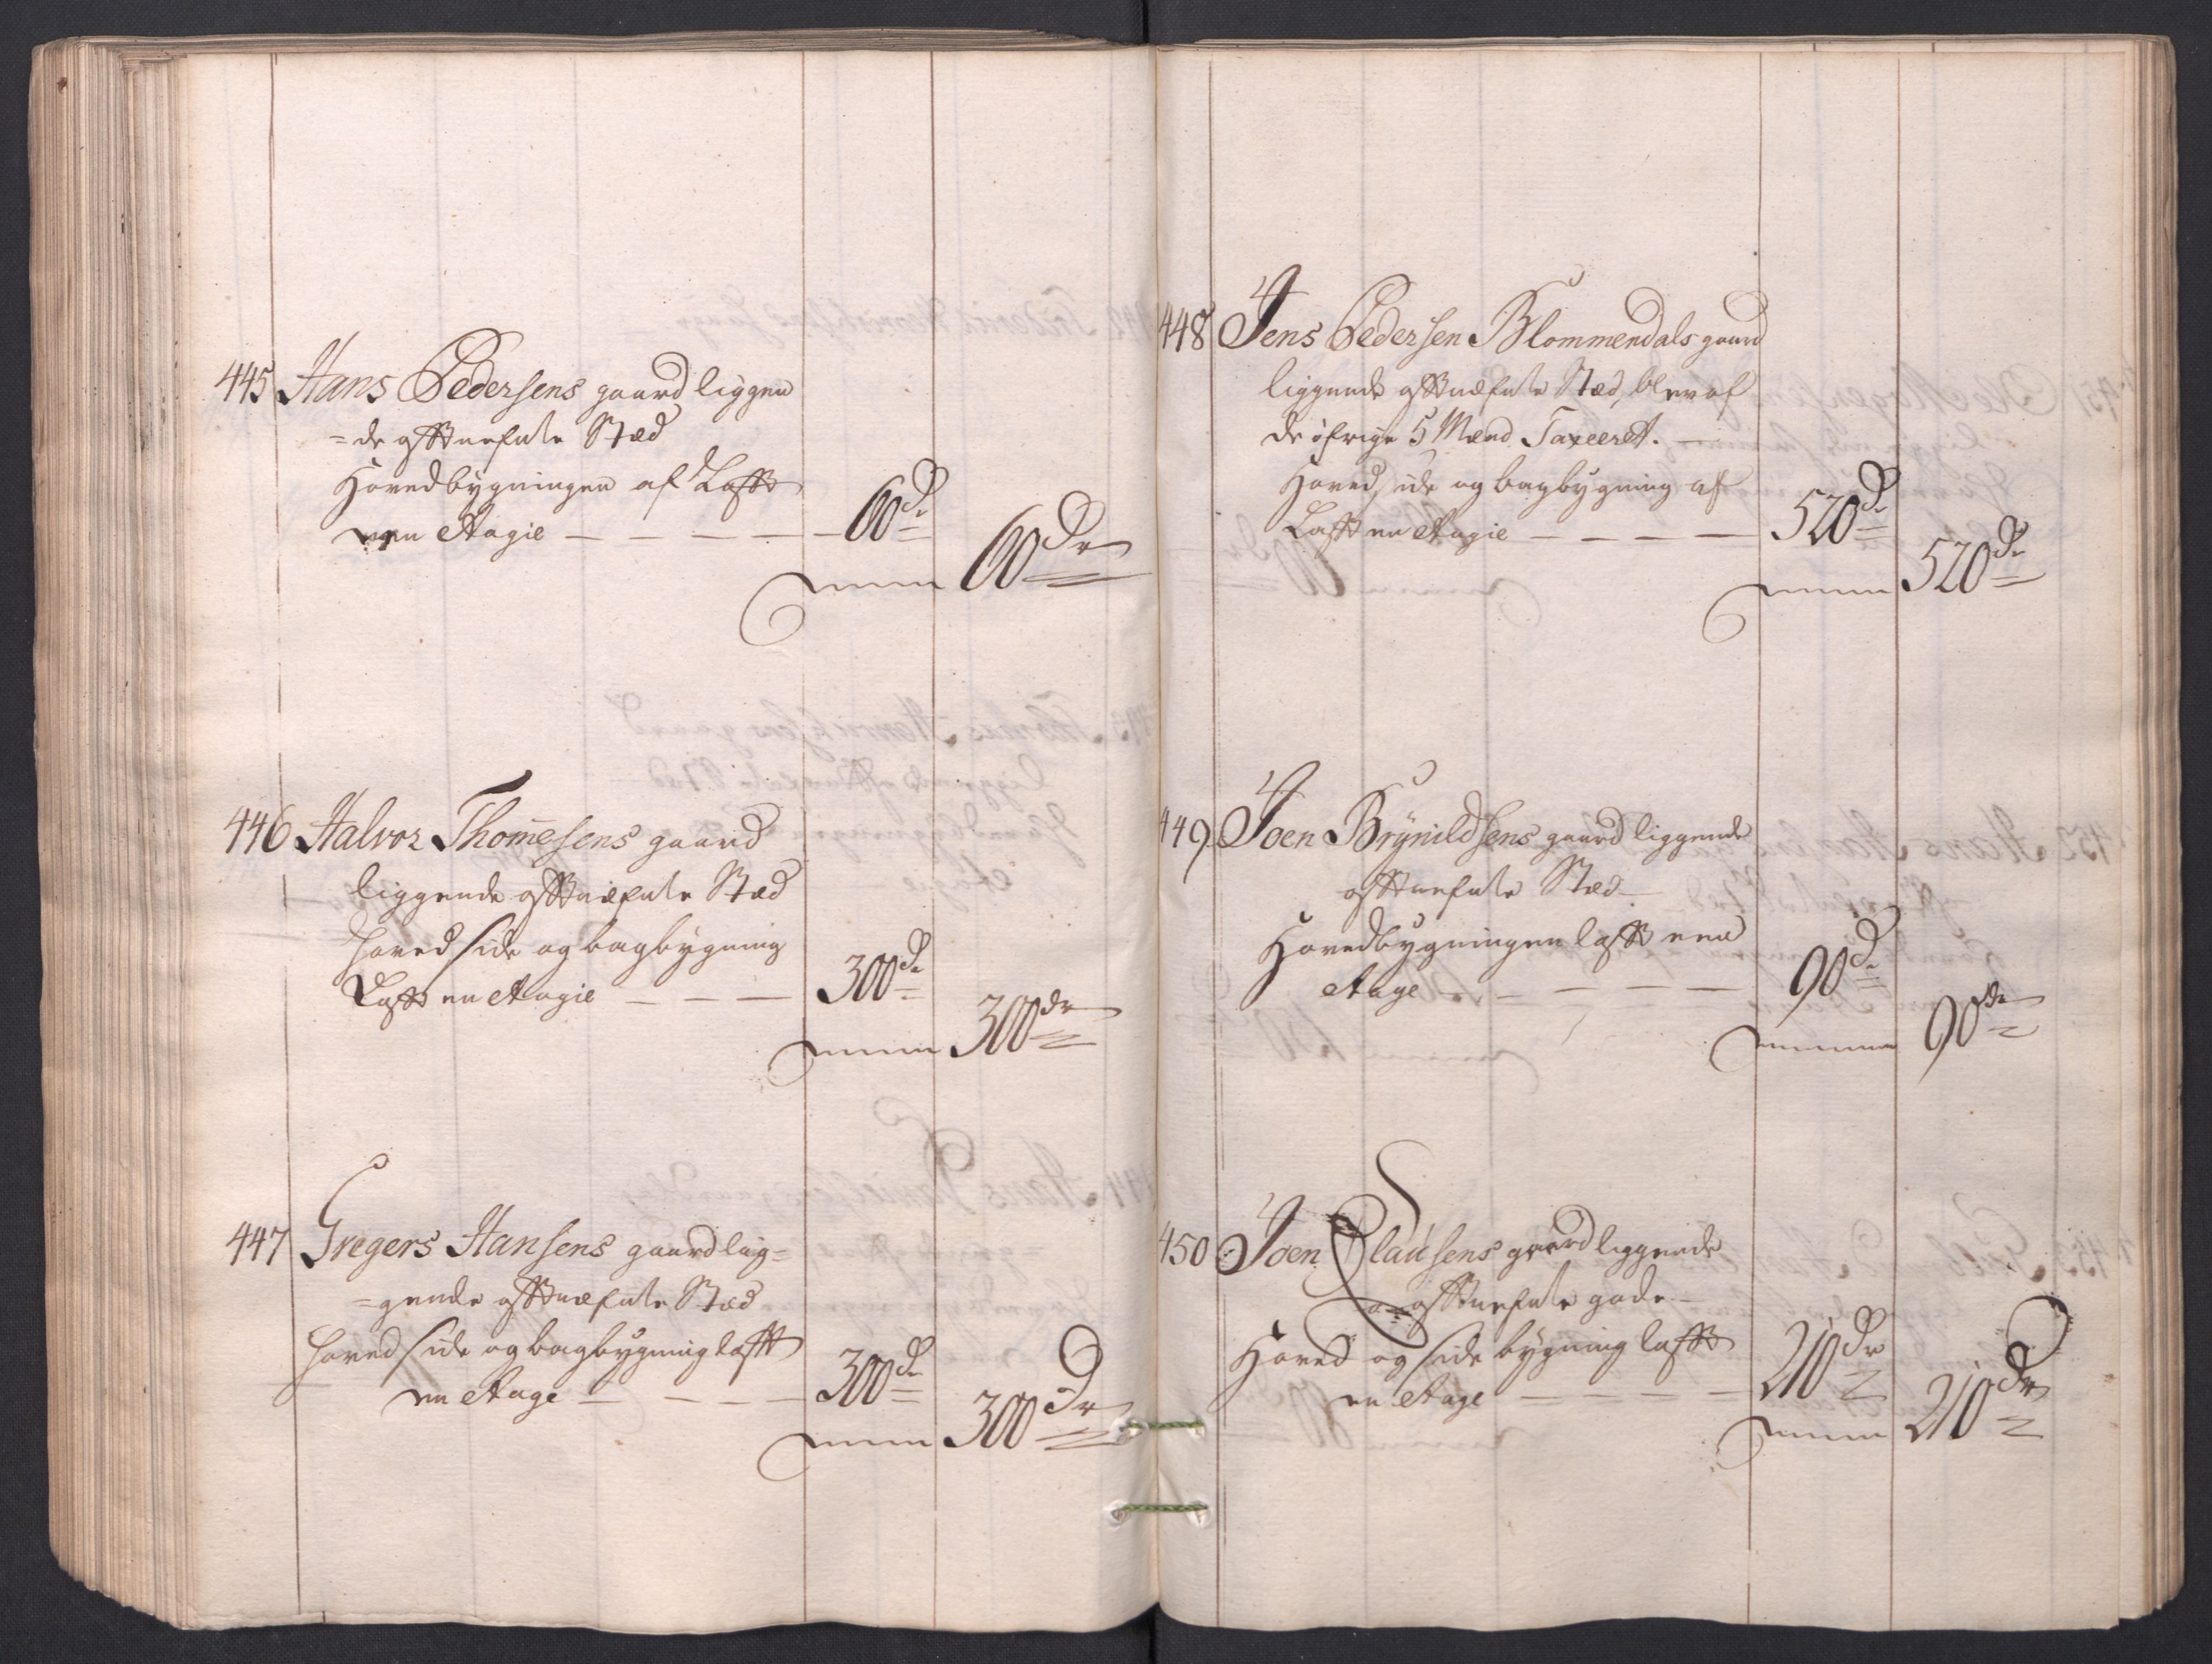 445 Hans Pedersens gaard liggen
=de offtnefnte Stæd
Hovedbygningen af Lafft
een Etagie — — — — — 60 dr
60 dr
446 Halvor Thom̄esens gaard
liggende offtnæfnte Stæd
Hoved side og bagbygning
Lafft en Etagie — — — 300 dr
300 dr
447 Gregers Hansens gaard lig=
=gende offtnæfnte Stæd
Hoved side og bagbygning lafft
en Etage — — — — 300 dr
300 dr
448 Jens Pedersen Blommendals gaard
liggende offtnæfnte Stæd, blev af
de øfrige 5 Mænd Taxeeret. —
Hoved side og bagbygning af
Lafft en Etagie — — — — 520 dr
520 dr
449 Joen Brÿnildsens gaard liggende
offtnefnte Stæd —
Hovedbygningen lafft een
Etage — — — — — 90 dr
90 dr
450 Joen Clausens gaard liggende
offtnefnte gade —
Hoved og side bygning lafft
en Etage — — — — — 210 dr
210 dr